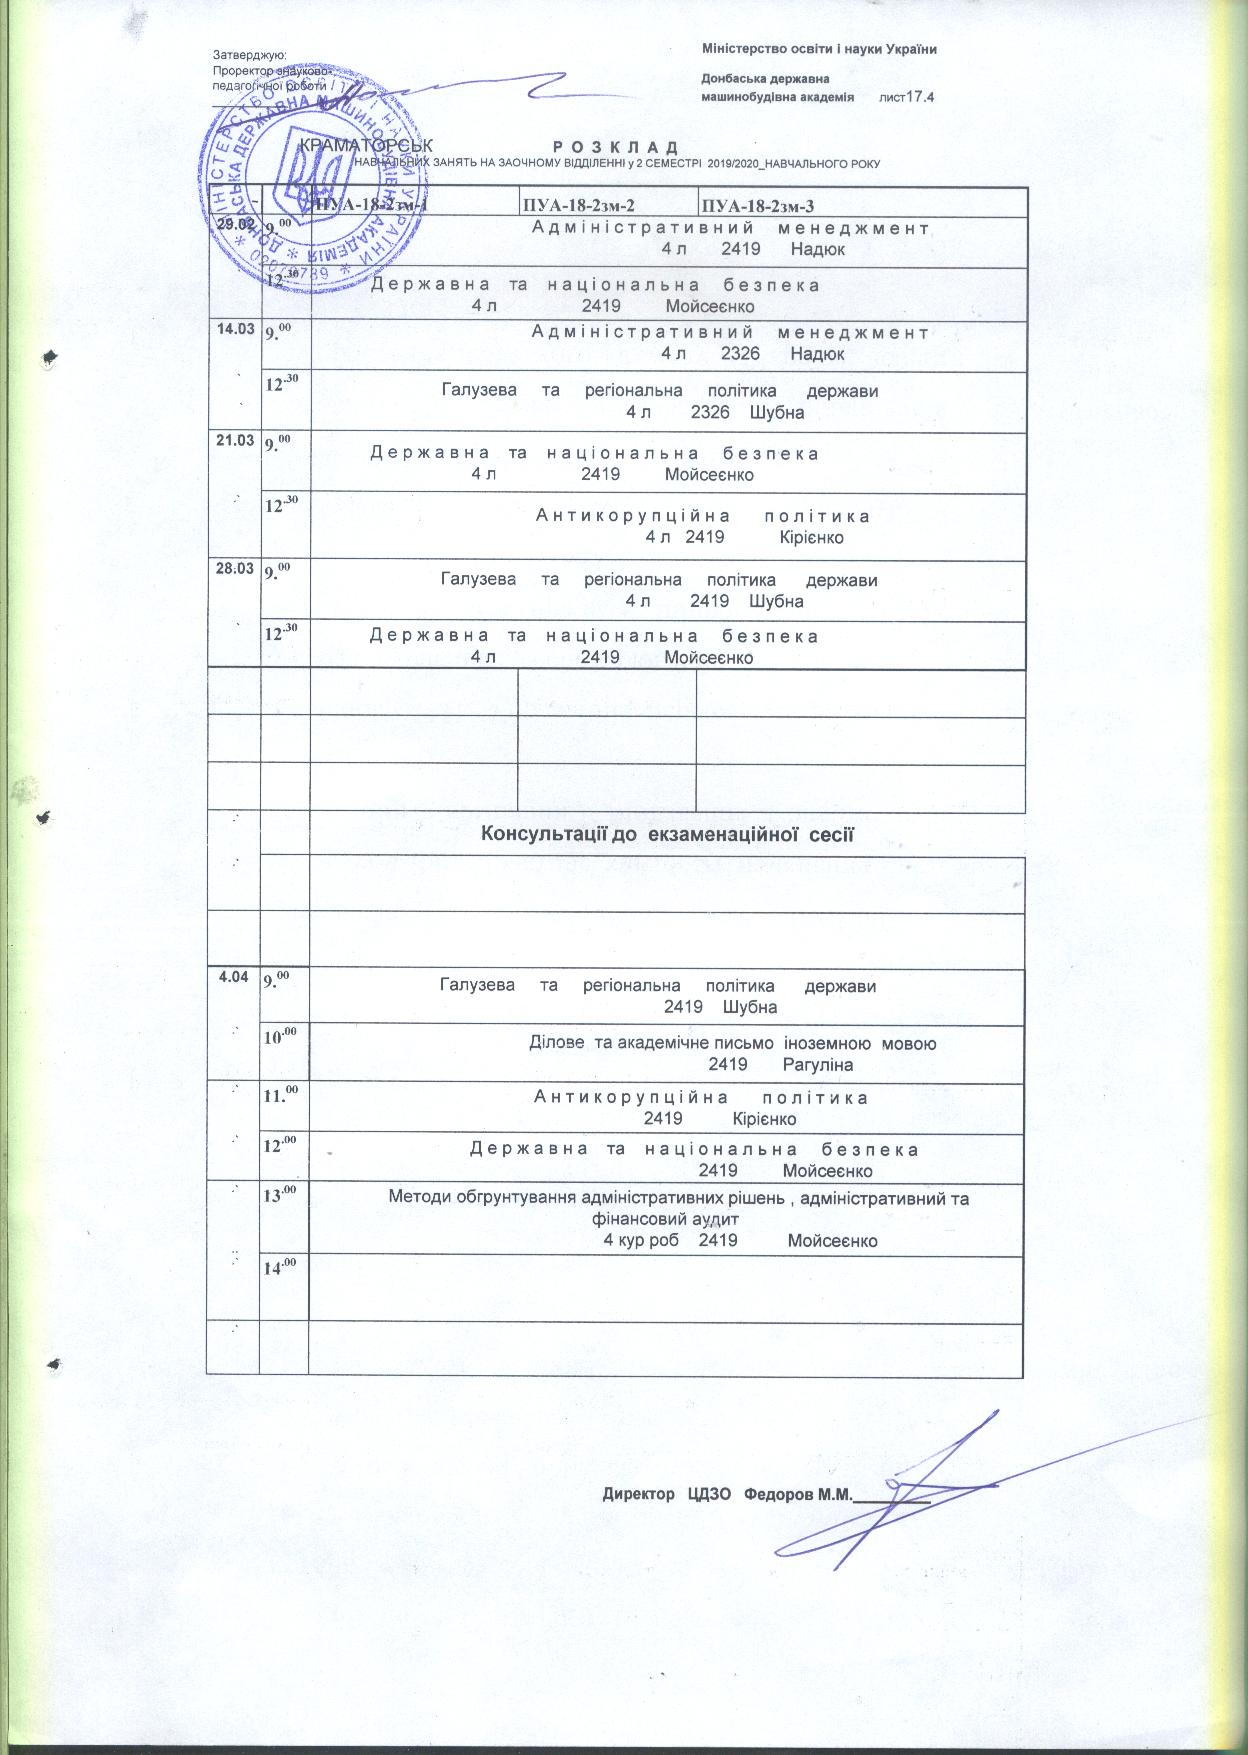 Затверджую:
Проректор знауково-
педагогічної роботи /
Міністерство освіти і науки України
Донбаська державна
машинобудівна академія лист17.4
КРАМАТОРСЬК
Р О З К Л А Д
НАВЧАЛЬНИХ ЗАНЯТЬ НА ЗАОЧНОМУ ВІДДІЛЕННІ у 2 СЕМЕСТРІ 2019/2020_НАВЧАЛЬНОГО РОКУ
ПУА-18-2зм-1 ПУА-18-2зм-2 ПУА-18-2зм-3
29.02 9.00 Адміністративний менеджмент
4 л 2419 Надюк
12.30 Державна та національна безпека
4 л 2419 Мойсеєнко
14.03 9.00 Адміністративний менеджмент
4 л 2326 Надюк
12.30 Галузева та регіональна політика держави
4 л 2326 Шубна
21.03 9.00 Державна та національна безпека
4 л 2419 Мойсеєнко
12.30 Антикорупційна політика
4 л 2419 Кірієнко
28.03 9.00 Галузева та регіональна політика держави
4 л 2419 Шубна
12.30 Державна та національна безпека
4 л 2419 Мойсеєнко
Консультації до екзаменаційної сесії
4.04 9.00 Галузева та регіональна політика держави
2419 Шубна
10.00 Ділове та академічне письмо іноземною мовою
2419 Рагуліна
11.00 Антикорупційна політика
2419 Кірієнко
12.00 Державна та національна безпека
2419 Мойсеєнко
13.00 Методи обгрунтування адміністративних рішень , адміністративний та
фінансовий аудит
4 кур роб 2419 Мойсеєнко
14.00
Директор ЦДЗО Федоров М.М.
МІНІСТЕРСТВО ОСВІТИ І НАУКИ УКРАЇНИ
ДОНБАСЬКА ДЕРЖАВНА МАШИНОБУДІВНА АКАДЕМІЯ